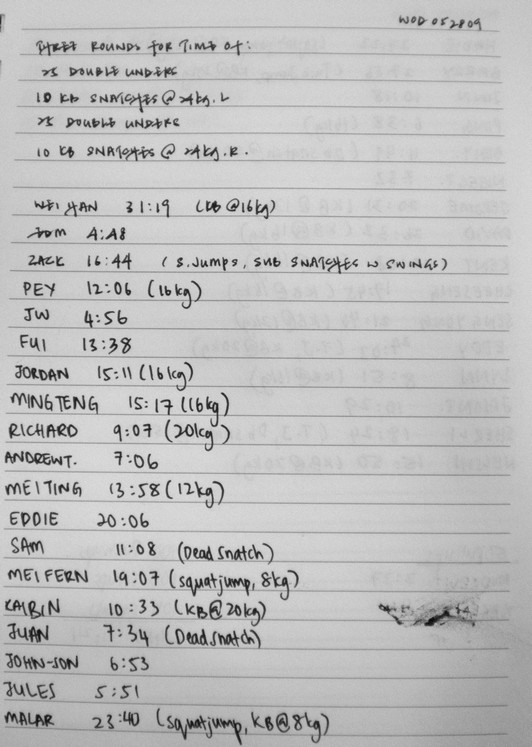 WOD 052809
THREE ROUNDS FOR TIME OF:
25 DOUBLE UNDERS
10 KB SNATCHES @ 24kg. L
25 DOUBLE UNDERS
10 KB SNATCHES @ 24kg. R.
WEIYAN 31:19 (KB @16kg)
TOM 4:48
ZACK 16:44 (S. JUMPS, SUB SNATCHES W. SWINGS)
PEY 12:06 (16kg)
JW 4:56
FUI 13:38
JORDAN 15:11 (16kg)
MINGTENG 15:17 (16kg)
RICHARD 9:07 (20kg)
ANDREWT. 7:06
MEITING 13:58 (12kg)
EDDIE 20:06
SAM 11:08 (Dead snatch)
MEIFERN 19:07 (squatjump, 8kg)
KAIBIN 10:33 (KB@20kg)
JUAN 7:34 (Dead snatch)
JOHN-SON 6:53
JULES 5:51
MALAR 23:40 (squatjump, KB@8kg)